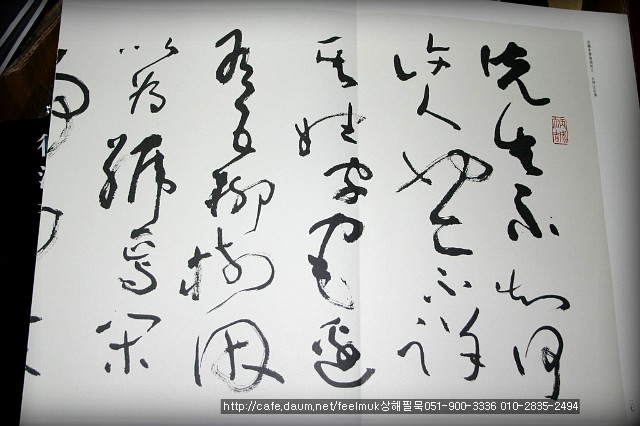 先生不知何
許人也亦不詳
其姓字宅邊
有五柳樹因
以為號焉閑
http://cafe.daum.net/feelmuk상해필묵051-900-3336 010-2835-2494